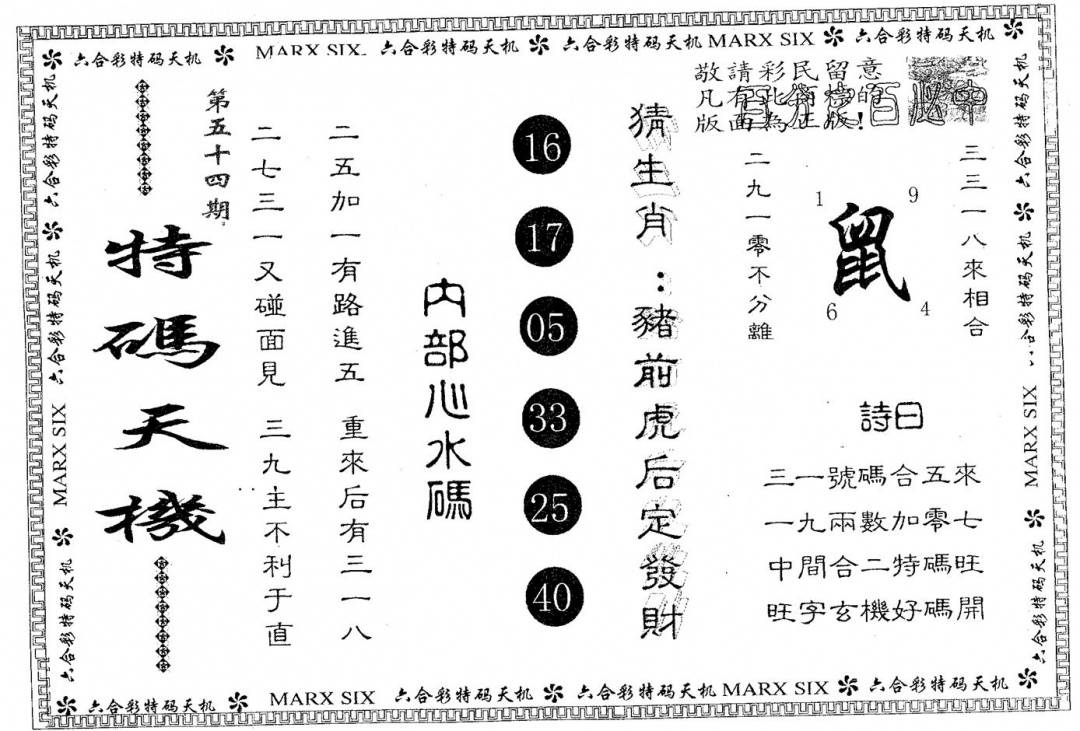 六合彩特码天机 MARX SIX 六合彩特码天机 六合彩特码天机 MARX SIX 六合彩特码天机
敬請彩民留意
版面為正版!
必中
三三一八來相合
1
9
鼠
6
4
二九一零不分離
詩曰
三一號碼合五來
一九兩數加零七
中間合二特碼旺
旺字玄機好碼開
猜生肖：豬前虎后定發財
16
17
05
33
25
40
内部心水碼
二五加一有路進五 重來后有三一八
二七三一又碰面見 三九主不利于直
第五十四期
特碼天機
六合彩特码天机 六合彩特码天机 MARX SIX 六合彩特码天机
六合彩特码天机 六合彩特码天机 MARX SIX 六合彩特码天机
六合彩特码天机 MARX SIX 六合彩特码天机 六合彩特码天机 MARX SIX 六合彩特码天机